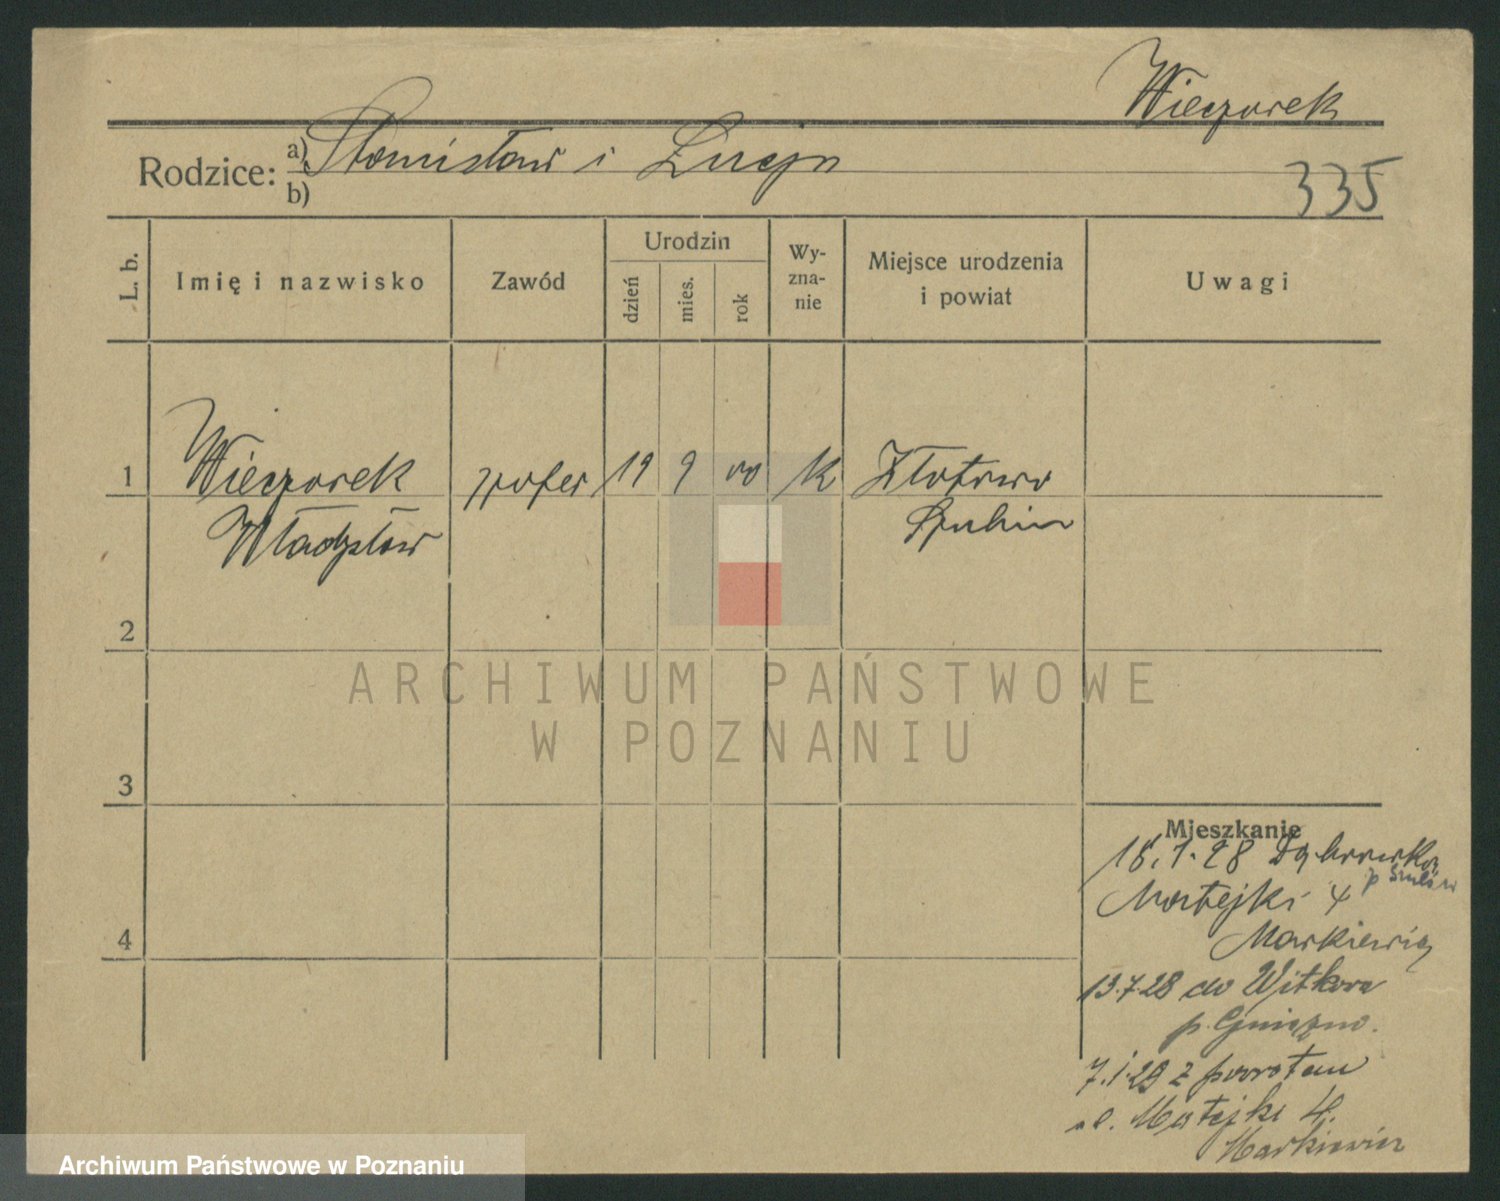 Wieczorek
Rodzice: a) Stanisław i Łucja
b)
335
L. b.
Imię i nazwisko
Zawód
Urodzin
dzień
mies.
rok
Wy-
zna-
nie
Miejsce urodzenia
i powiat
Uwagi
1
Wieczorek
Władysław
szofer
19
9
00
k
Złotowo
Szubin
2
3
4
Mieszkanie
1.28 Dąbrówka
p
Matejki 4
Markiewicz
13.7.28 do Witkowa
p. Gniezno.
7.1.29 z powrotem
ul. Matejki 4.
Markiewicz
ARCHIWUM PAŃSTWOWE
W POZNANIU
Archiwum Państwowe w Poznaniu